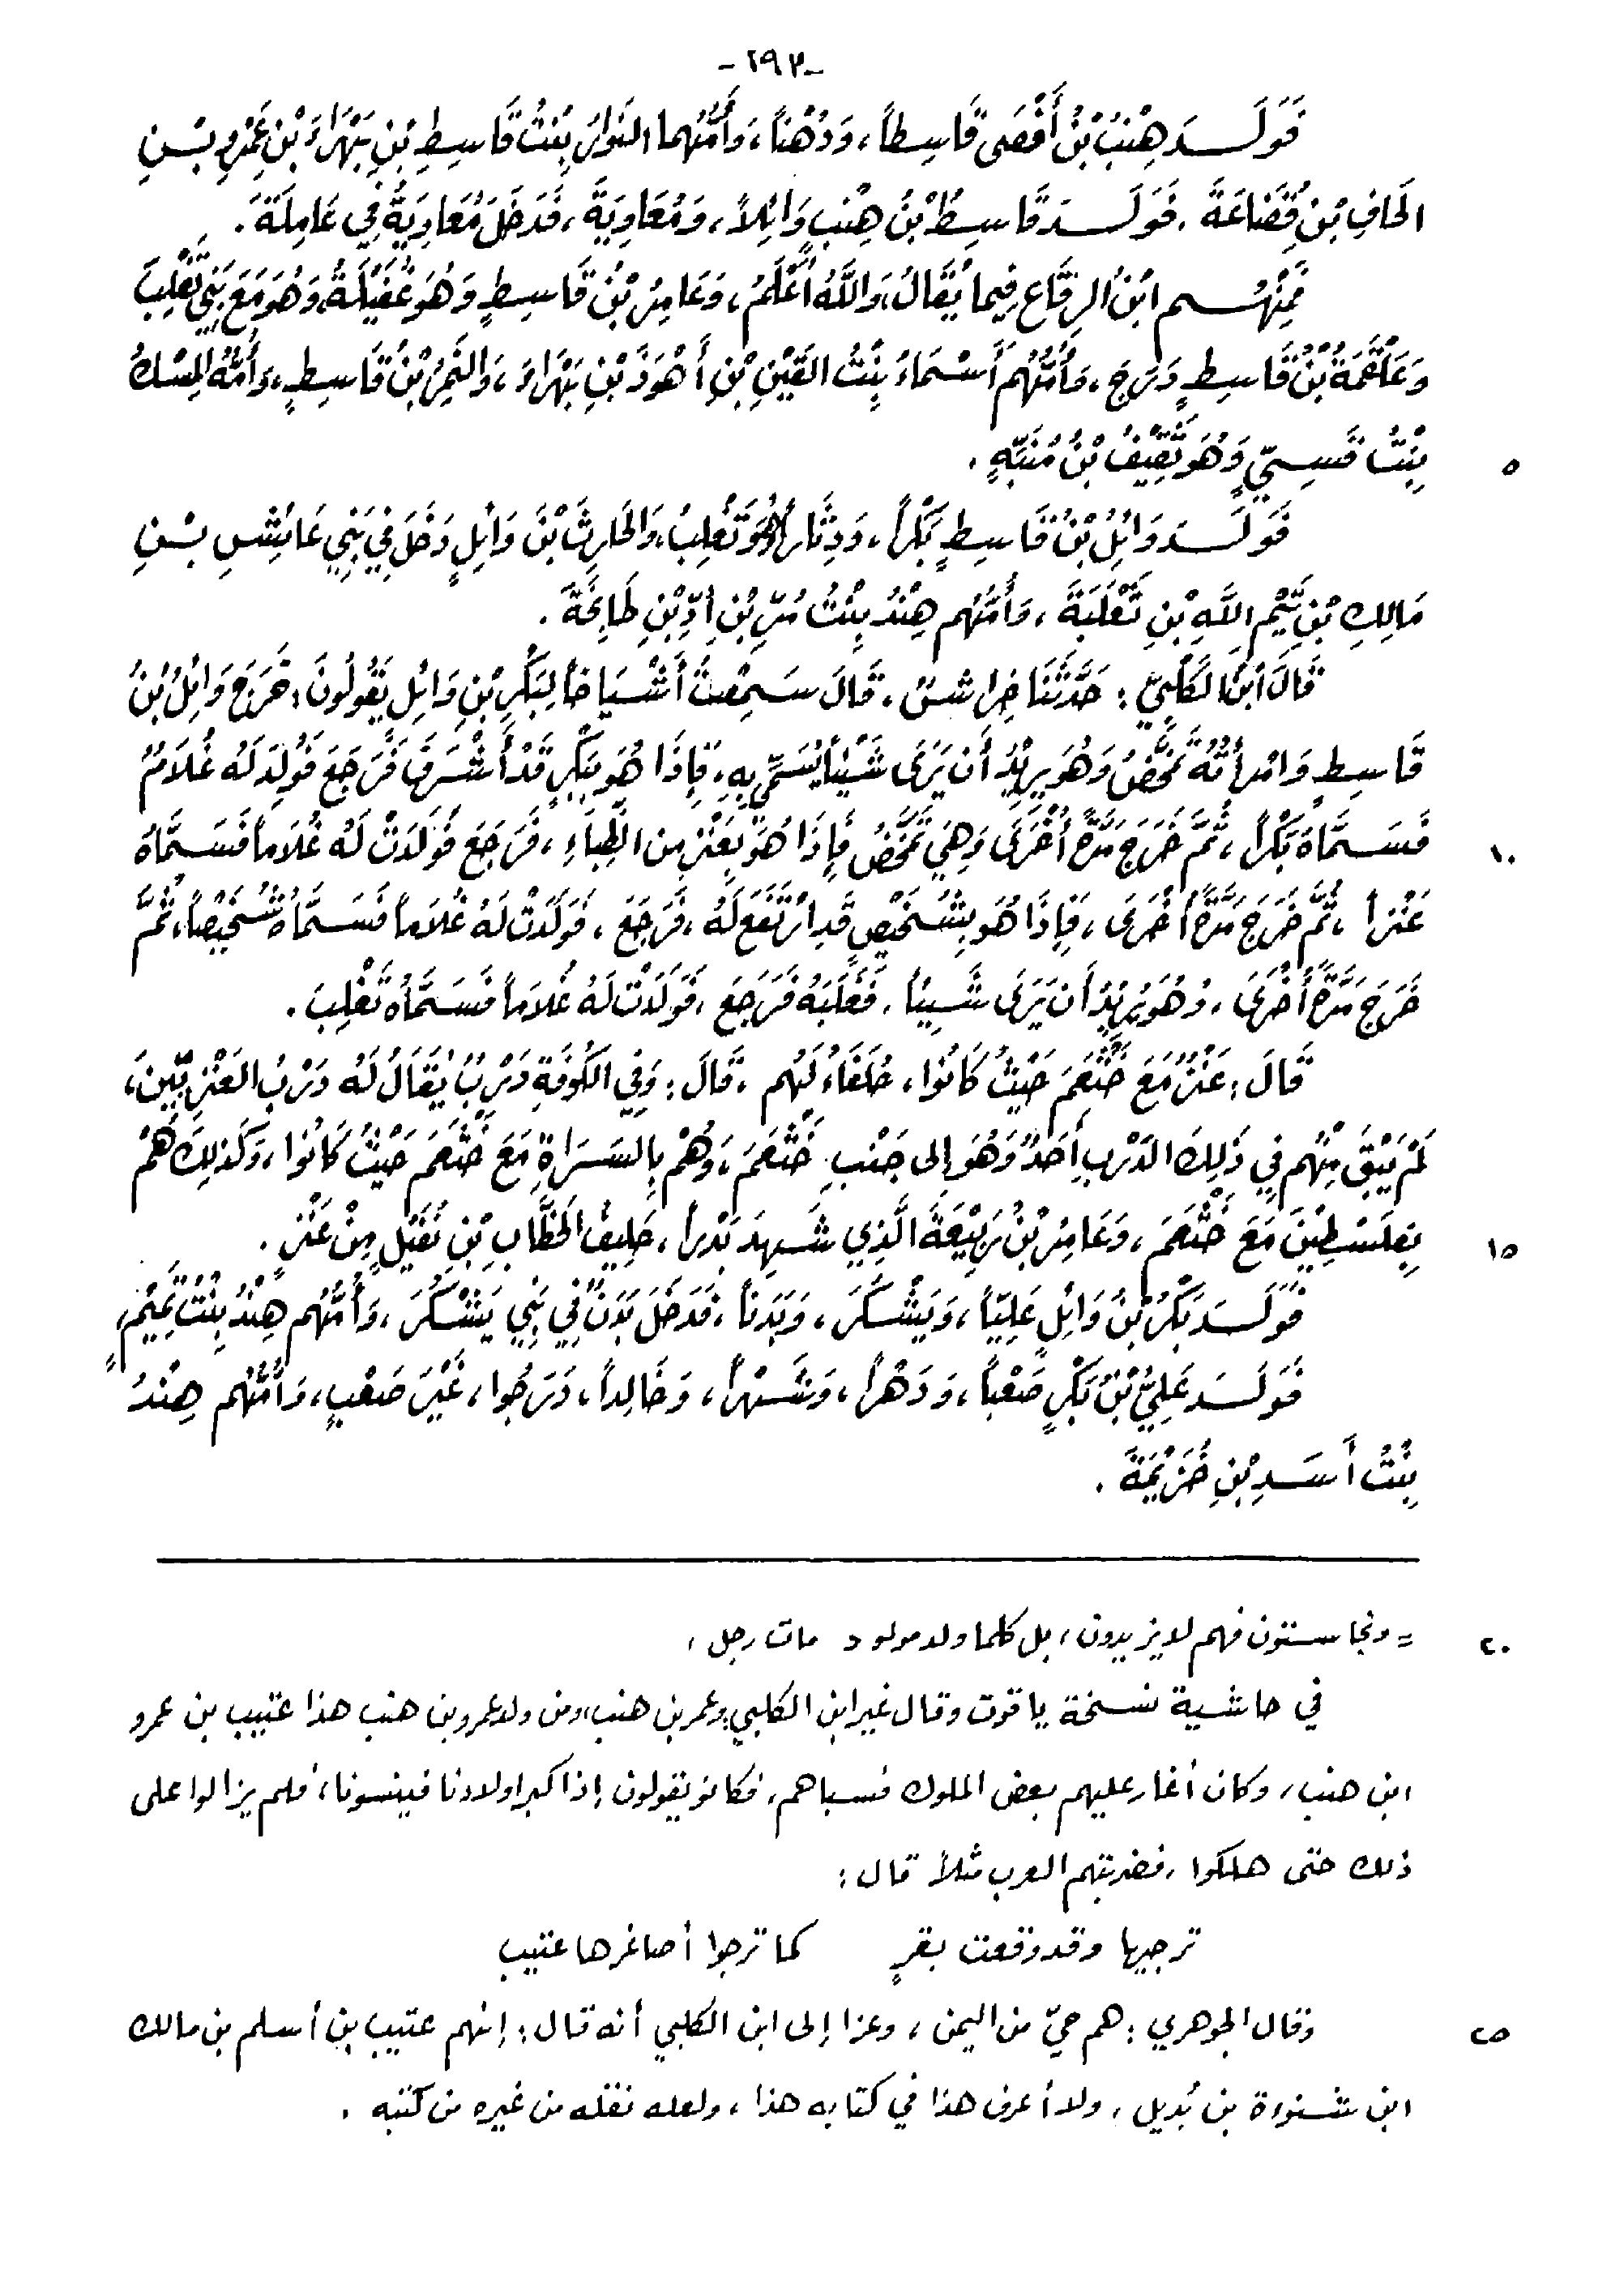 -٢٩٣-
فَوَلَـدَ هِنْبُ بْنُ أَفْصَى قَاسِطاً، وَدُهْناً، وَأُمُّهُما النَوَارُ بِنْتُ قَاسِطِ بْنِ بَهْرَاءَ بْنِ عَمْرِو بْـنِ
الحَافِ بْنِ قُضَاعَةَ. فَوَلَـدَ قَاسِطُ بْنُ هِنْبٍ وَائِلاً، وَمُعَاوِيَةَ، فَدَخَلَ مُعَاوِيَةُ فِي عَامِلَةَ.
فَمِنْهُـم ابْنُ الرِقَاعِ فِيما يُقَالُ، وَاللَّهُ أَعْلَمُ، وَعَامِرُ بْنُ قَاسِطٍ وَهُوَ عُفَيْلَةُ، وَهُوَ مَعَ بَنِي تَغْلِبَ
وَعَلْقَمَةُ بْنُ قَاسِطٍ دَرَجَ، وَأُمُّهُم أَسْمَاءُ بِنْتُ القَيْنِ بْنِ أَهْوَدَ بْنِ بَهْرَاءَ، وَالنَمِرُ بْنُ قَاسِطٍ، وَأُمُّهُ المِسْكُ
بِنْتُ قَسِـيٍّ وَهُوَ ثَقِيْفُ بْنُ مُنَبِّهٍ. ٥
فَوَلَـدَ وَائِلُ بْنُ قَاسِطٍ بَكْراً، وَدِثَاراً وَهُوَ تَغْلِبُ، وَالحَارِثَ بْنَ وَائِلٍ دَخَلَ فِي بَنِي عَائِشِ بْـنِ
مَالِكِ بْنِ تَيْمِ اللَّهِ بْنِ ثَعْلَبَةَ، وَأُمُّهُم هِنْدُ بِنْتُ مُرِّ بْنِ أُدِّ بْنِ طَابِخَةَ.
قَالَ ابْنُ الكَلْبِيِّ: حَدَّثَنَا خِرَاشٌ. قَالَ سَمِعْتُ أَشْيَاخاً لِبَكْرِ بْنِ وَائِلِ يَقُولُونَ: خَرَجَ وَائِلُ بْنُ
قَاسِطٍ وَامْرَأَتُهُ تَمْخَضُ وَهُوَ يُرِيْدُ أَن يَرَى شَيْئاً يُسَمِّي بِهِ، فَإِذَا هُوَ بِبَكْرٍ قَدْ أَشْرَفَ فَرَجَعَ فَوُلِدَ لَهُ غُلَامٌ
فَسَـمَّاهُ بَكْراً، ثُمَّ خَرَجَ مَرَّةً أُخْرَى وَهِيَ تَمْخَضُ فَإِذَا هُوَ بِعَنْزٍ مِن الظِّبَاءِ، فَرَجَعَ فَوَلَدَتْ لَهُ غُلَاماً فَسَـمَّاهُ ١٠
عَنْزاً، ثُمَّ خَرَجَ مَرَّةً أُخْرَى، فَإِذَا هُوَ بِشُخَيْصٍ قَدِ ارْتَفَعَ لَهُ، فَرَجَعَ، فَوَلَدَتْ لَهُ غُلَاماً فَسَـمَّاهُ شُخَيْصاً، ثُمَّ
خَرَجَ مَرَّةً أُخْرَى، وَهُوَ يُرِيْدُ أَن يَرَى شَيْئاً، فَغَلَبَهُ فَرَجَعَ، فَوَلَدَتْ لَهُ غُلَاماً فَسَـمَّاهُ تَغْلِبَ.
قَالَ: عَنْزٌ مَعَ خَثْعَمَ حَيْثُ كَانُوا، حُلَفَاءُ لَهُم، قَالَ: وَفِي الكُوفَةِ دَرْبٌ يُقَالُ لَهُ دَرْبُ العَنْزِيِّينَ،
لَمْ يَبْقَ مِنْهُم فِي ذَلِكَ الدَرْبِ أَحَدٌ وَهُوَ إِلى جَنْبِ خَثْعَمَ، وَهُمْ بِالسَـرَاةِ مَعَ خَثْعَمَ حَيْثُ كَانُوا، وَكَذلِكَ هُمْ
بِفِلَسْطِيْنَ مَعَ خَثْعَمَ، وَعَامِرُ بْنُ رَبِيْعَةَ الَّذِي شَـهِدَ بَدْراً، حَلِيفُ الخَطَّابِ بْنِ نُفَيْلٍ مِنْ عَنْزٍ. ١٥
فَوَلَـدَ بَكْرُ بْنُ وَائِلٍ عَلِيّاً، وَيَشْكُرَ، وَبَدَناً، فَدَخَلَ بَدَنٌ فِي بَنِي يَشْكُرَ، وَأُمُّهُم هِنْدُ بِنْتُ تَمِيْمٍ،
فَوَلَـدَ عَلِيُّ بْنُ بَكْرٍ صَعْباً، وَدَهْراً، وَشَـهْراً، وَخَالِداً، دَرَجُوا، غَيْرَ صَعْبٍ، وَأُمُّهُم هِنْدُ
بِنْتُ أَسَـدِ بْنِ خُزَيْمَةَ.
= ونجا ستون فهم لا يزيدون، بل كلما ولد مولود مات رجل، ٢٠
في حاشية نسخة ياقوت وقال غير ابن الكلبي: وعمر بن هنب، ومن ولد عمرو بن هنب هذا عتيب بن عمرو
ابن هنب، وكان أغار عليهم بعض الملوك فسباهم، فكانو يقولون إذا كبر اولادنا فينسونا، فلم يزالوا على
ذلك حتى هلكوا، فضربتهم العرب مثلاً قال:
ترجيها وقد وقعت بقرٍ كما ترجوا أصاغرها عتيب
وقال الجوهري: هم حيّ من اليمن، وعزا إلى ابن الكلبي أنه قال: إنهم عتيب بن أسلم بن مالك ٢٥
ابن شنوءة بن بُديل، ولا أعرف هذا في كتابه هذا، ولعله نقله من غيره من كتبه.